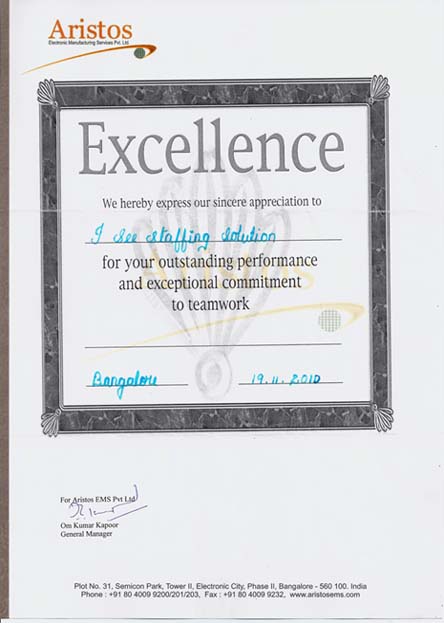 Aristos
Electronic Manufacturing Services Pvt. Ltd.
Excellence
We hereby express our sincere appreciation to
I See Staffing Solution
for your outstanding performance
and exceptional commitment
to teamwork
Aristos
Bangalore 19.11.2010
For Aristos EMS Pvt Ltd
Om Kumar Kapoor
General Manager
Plot No. 31, Semicon Park, Tower II, Electronic City, Phase II, Bangalore - 560 100. India
Phone : +91 80 4009 9200/201/203, Fax : +91 80 4009 9232, www.aristosems.com